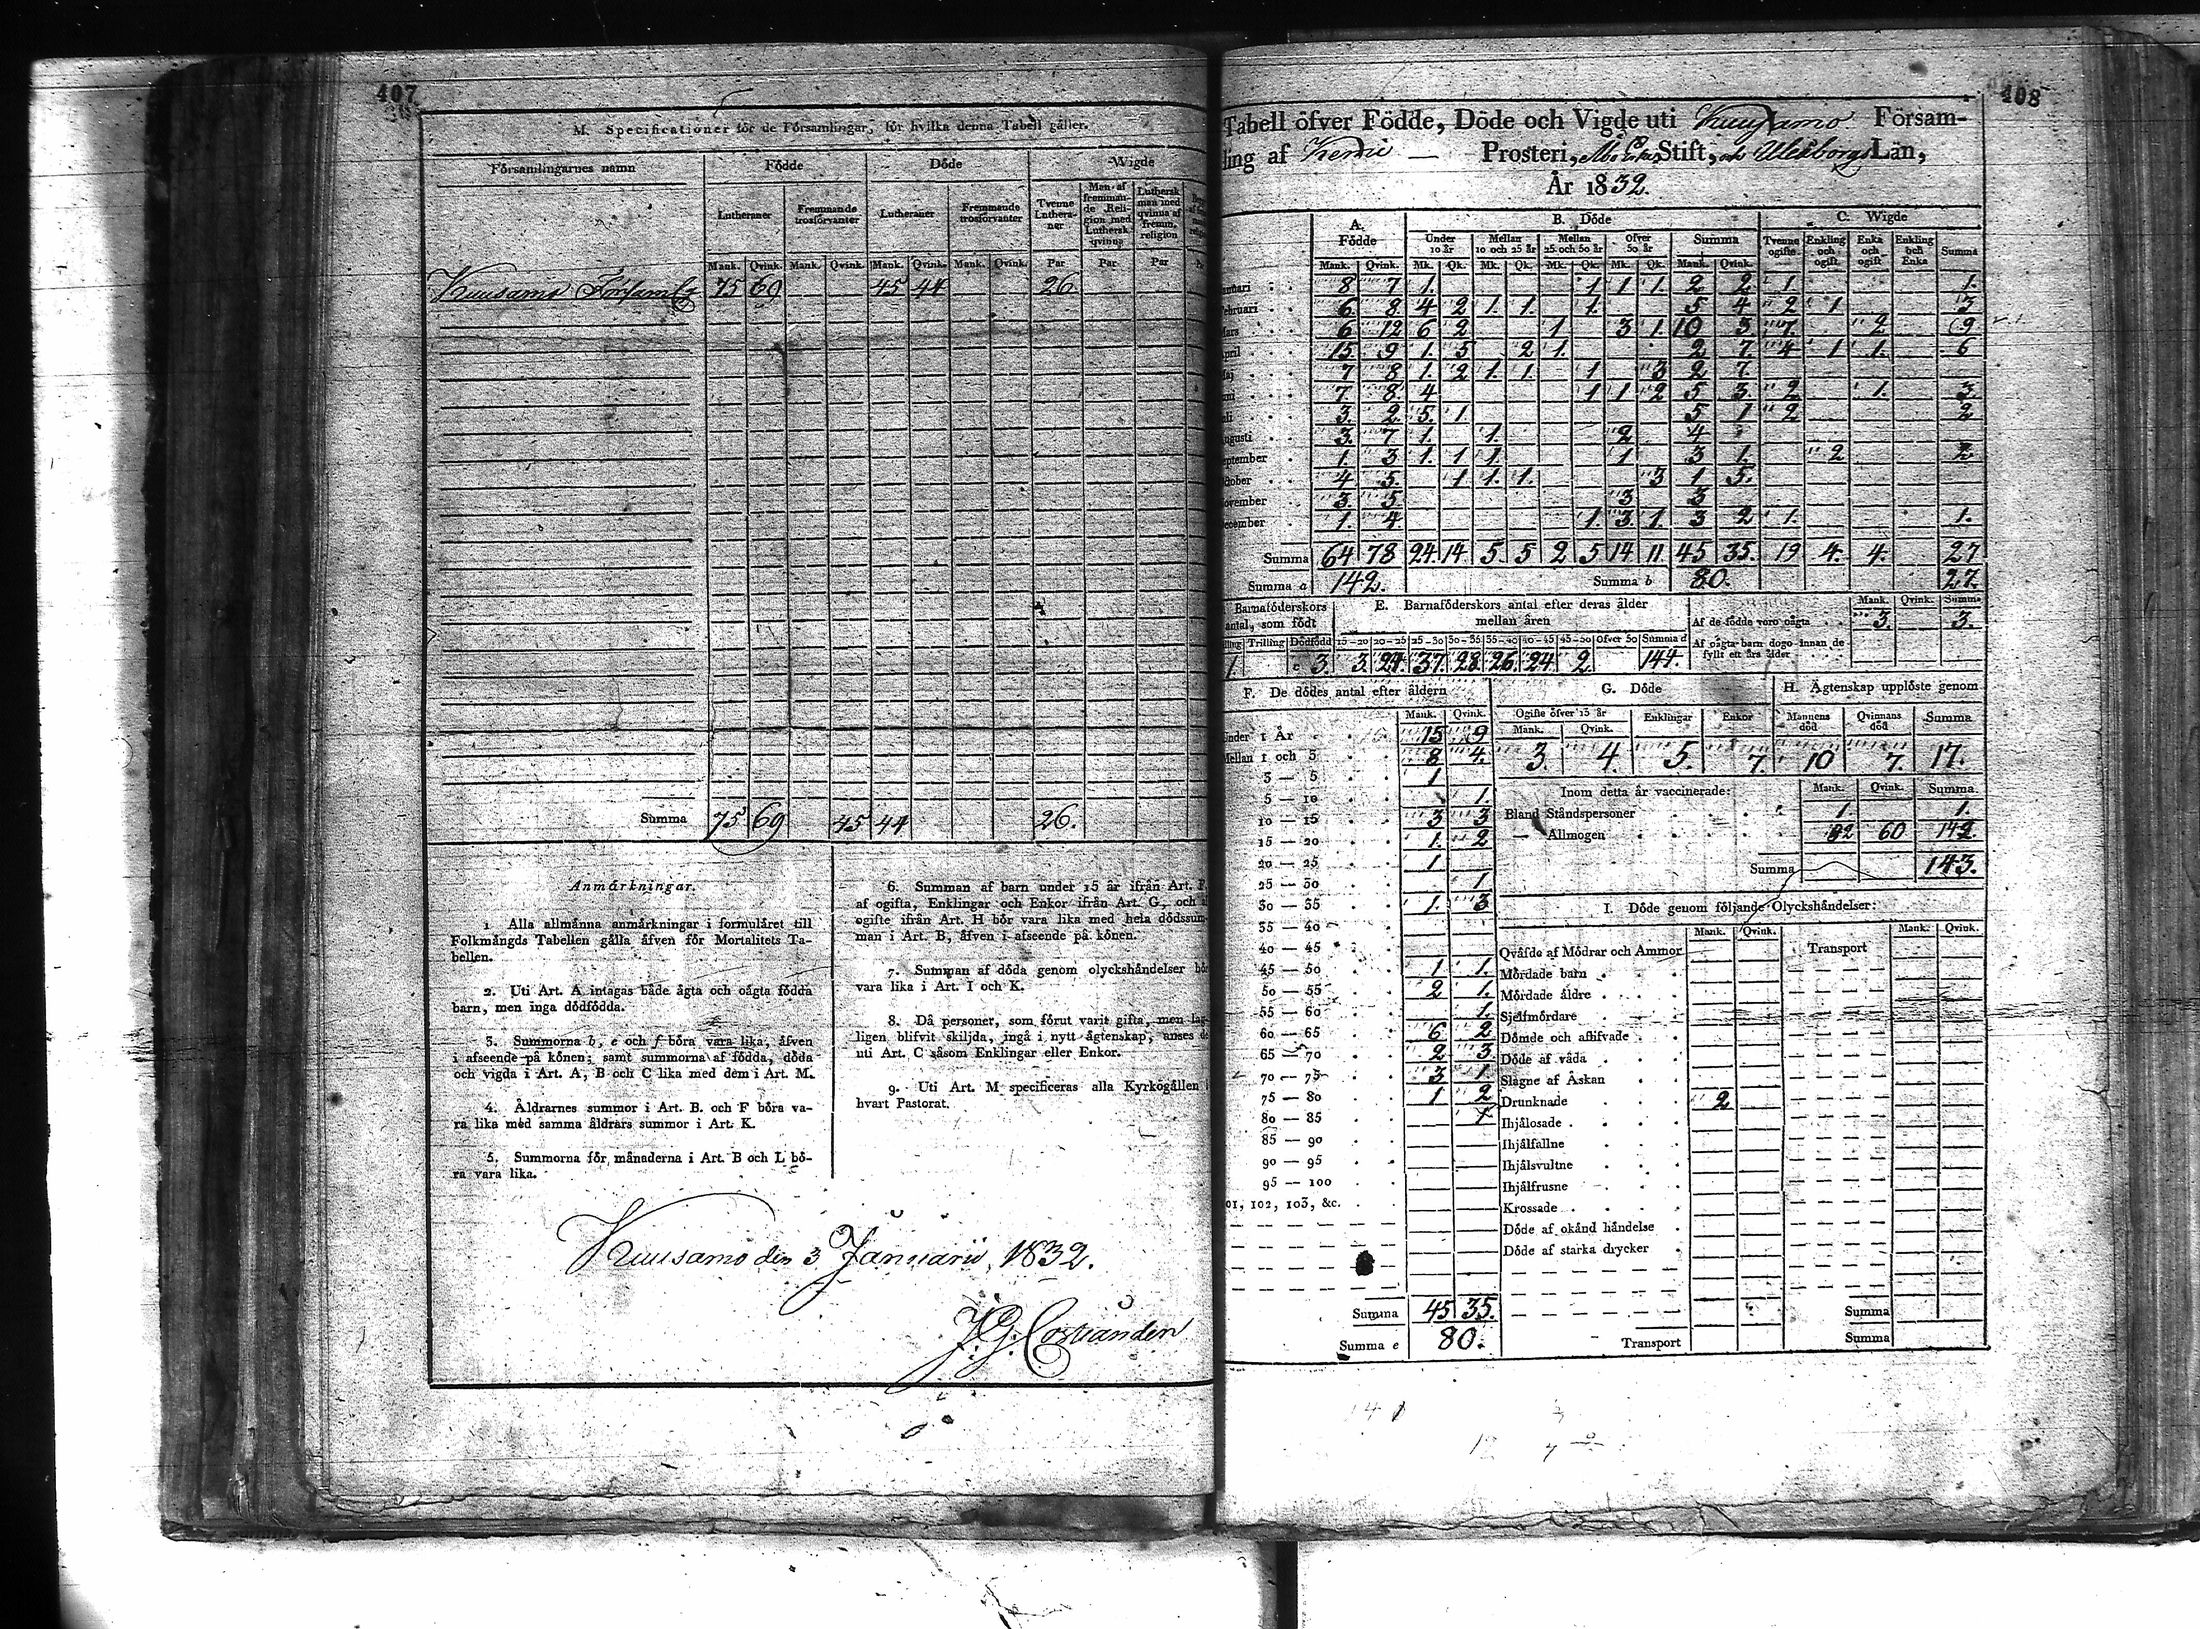 407
M. Specificationer för de Församlingar, för hvilka denna Tabell gäller.
Församlingarnes namn Födde Döde Wigde
Lutheraner Fremmande trosförvanter Lutheraner Fremmande trosförvanter Tvenne Lutheraner Man af fremmande Religion med Luthersk qvinna Luthersk man med qvinna af fremm. religion
Mank. Qvink. Mank. Qvink. Mank. Qvink. Mank. Qvink. Par Par Par
Kuusamo 75 69 45 44 26
Summa 75 69 45 44 26.
Anmärkningar.
1 Alla allmänna anmärkningar i formuläret till
Folkmängds Tabellen gälla äfven för Mortalitets Ta-
bellen.
2. Uti Art. A intagas både ägta och oägta födda
barn, men inga dödfödda.
3. Summorna b, e och f böra vara lika, äfven
i afseende på könen; samt summorna af födda, döda
och vigda i Art. A, B och C lika med dem i Art. M.
4. Åldrarnes summor i Art. B. och F böra va-
ra lika med samma åldrars summor i Art. K.
5. Summorna för månaderna i Art. B och L bö-
ra vara lika.
6. Summan af barn under 15 år ifrån Art. F,
af ogifta, Enklingar och Enkor ifrån Art. G, och af
ogifte ifrån Art. H bör vara lika med hela dödssum-
man i Art. B, äfven i afseende på könen.
7. Summan af döda genom olyckshändelser bör
vara lika i Art. I och K.
8. Då personer, som förut varit gifta, men lag-
ligen blifvit skiljda, ingå i nytt ägtenskap, anses de
uti Art. C såsom Enklingar eller Enkor.
9. Uti Art. M specificeras alla Kyrkogällen i
hvart Pastorat.
Kuusamo den 3 Januarii, 1832.
408
Tabell öfver Födde, Döde och Vigde uti Kuusamo Försam-
ling af Kemi — Prosteri, Stift, och Uleåborgs Län,
År 1832.
A. Födde B. Döde C. Wigde
Under 10 år Mellan 10 och 25 år Mellan 25 och 50 år Öfver 50 år Summa Tvenne ogifte Enkling och ogift Enka och ogift Enkling och Enka Summa
Mank. Qvink. Mk. Qk. Mk. Qk. Mk. Qk. Mk. Qk. Mank. Qvink.
nuari 8 7 1. 1 1 1. 2 2 1. 1.
ebruari 6. 8. 4 2 1. 1. 1. 5 4 2 1 3
ars 6 12 6 2 1 3 1. 10 3 7. 2 9
pril 15. 9 1. 5 2 1. 2 7. 4 1 1. 6
aj 7 8 1. 2 1. 1. 1 3 2 7.
ni 7. 8. 4 1 1 2 5 3. 2 1. 3.
li 3. 2 5. 1. 5 1 2 2
ugusti 3. 7 1. 1. 2 4
eptember 1. 3 1. 1 1. 1 3 1. 2 2.
ktober 4 5. 1 1. 1. 3 1 5.
ovember 3. 5 3 3
ecember 1. 4. 1. 3. 1. 3 2 1. 1.
Summa 64 78 24. 14 5. 5 2 5 14 11 45 35. 19 4. 4. 27
Summa a 142. Summa b 80. 27.
Barnaföderskors antal, som födt
E. Barnaföderskors antal efter deras ålder mellan åren
Trilling Dödfödd 15—20 20—25 25—30 30—35 35—40 40—45 45—50 öfver 50 Summa d
1. c 3. 3. 24. 37. 28. 26. 24 2 144.
Mank. Qvink. Summa
Af de födde voro oägta 3. 3.
Af oägta barn dogo innan de
fyllt ett års ålder
F. De dödes antal efter åldern
Mank. Qvink.
Under 1 År 15 9
Mellan 1 och 3 8 4.
3 — 5 1
5 — 10 1.
10 — 15 3 3
15 — 20 1. 2
20 — 25 1
25 — 30 1
30 — 35 1. 3
35 — 40
40 — 45
45 — 50 1 1.
50 — 55 2 1.
55 — 60 1.
60 — 65 6 2
65 — 70 2 3
70 — 75 3 1.
75 — 80 1 2
80 — 85 1
85 — 90
90 — 95
95 — 100
01, 102, 103, &c.
Summa 45 35.
Summa e 80.
G. Döde
Ogifte öfver 15 år Enklingar Enkor
Mank. Qvink.
3. 4. 5. 7.
H. Ägtenskap upplöste genom
Mannens död Qvinnans död Summa
10 7. 17.
Inom detta år vaccinerade: Mank. Qvink. Summa.
Bland Ståndspersoner 1. 1.
— Allmogen 82 60 142.
Summa 143.
I. Döde genom följande Olyckshändelser:
Mank. Qvink. Mank. Qvink.
Qväfde af Mödrar och Ammor Transport
Mördade barn
Mördade äldre
Sjelfmördare
Dömde och aflifvade
Döde af våda
Slagne af Åskan
Drunknade 2
Ihjälosade
Ihjälfallne
Ihjälsvultne
Ihjälfrusne
Krossade
Döde af okänd händelse
Döde af starka drycker
Summa
Transport Summa